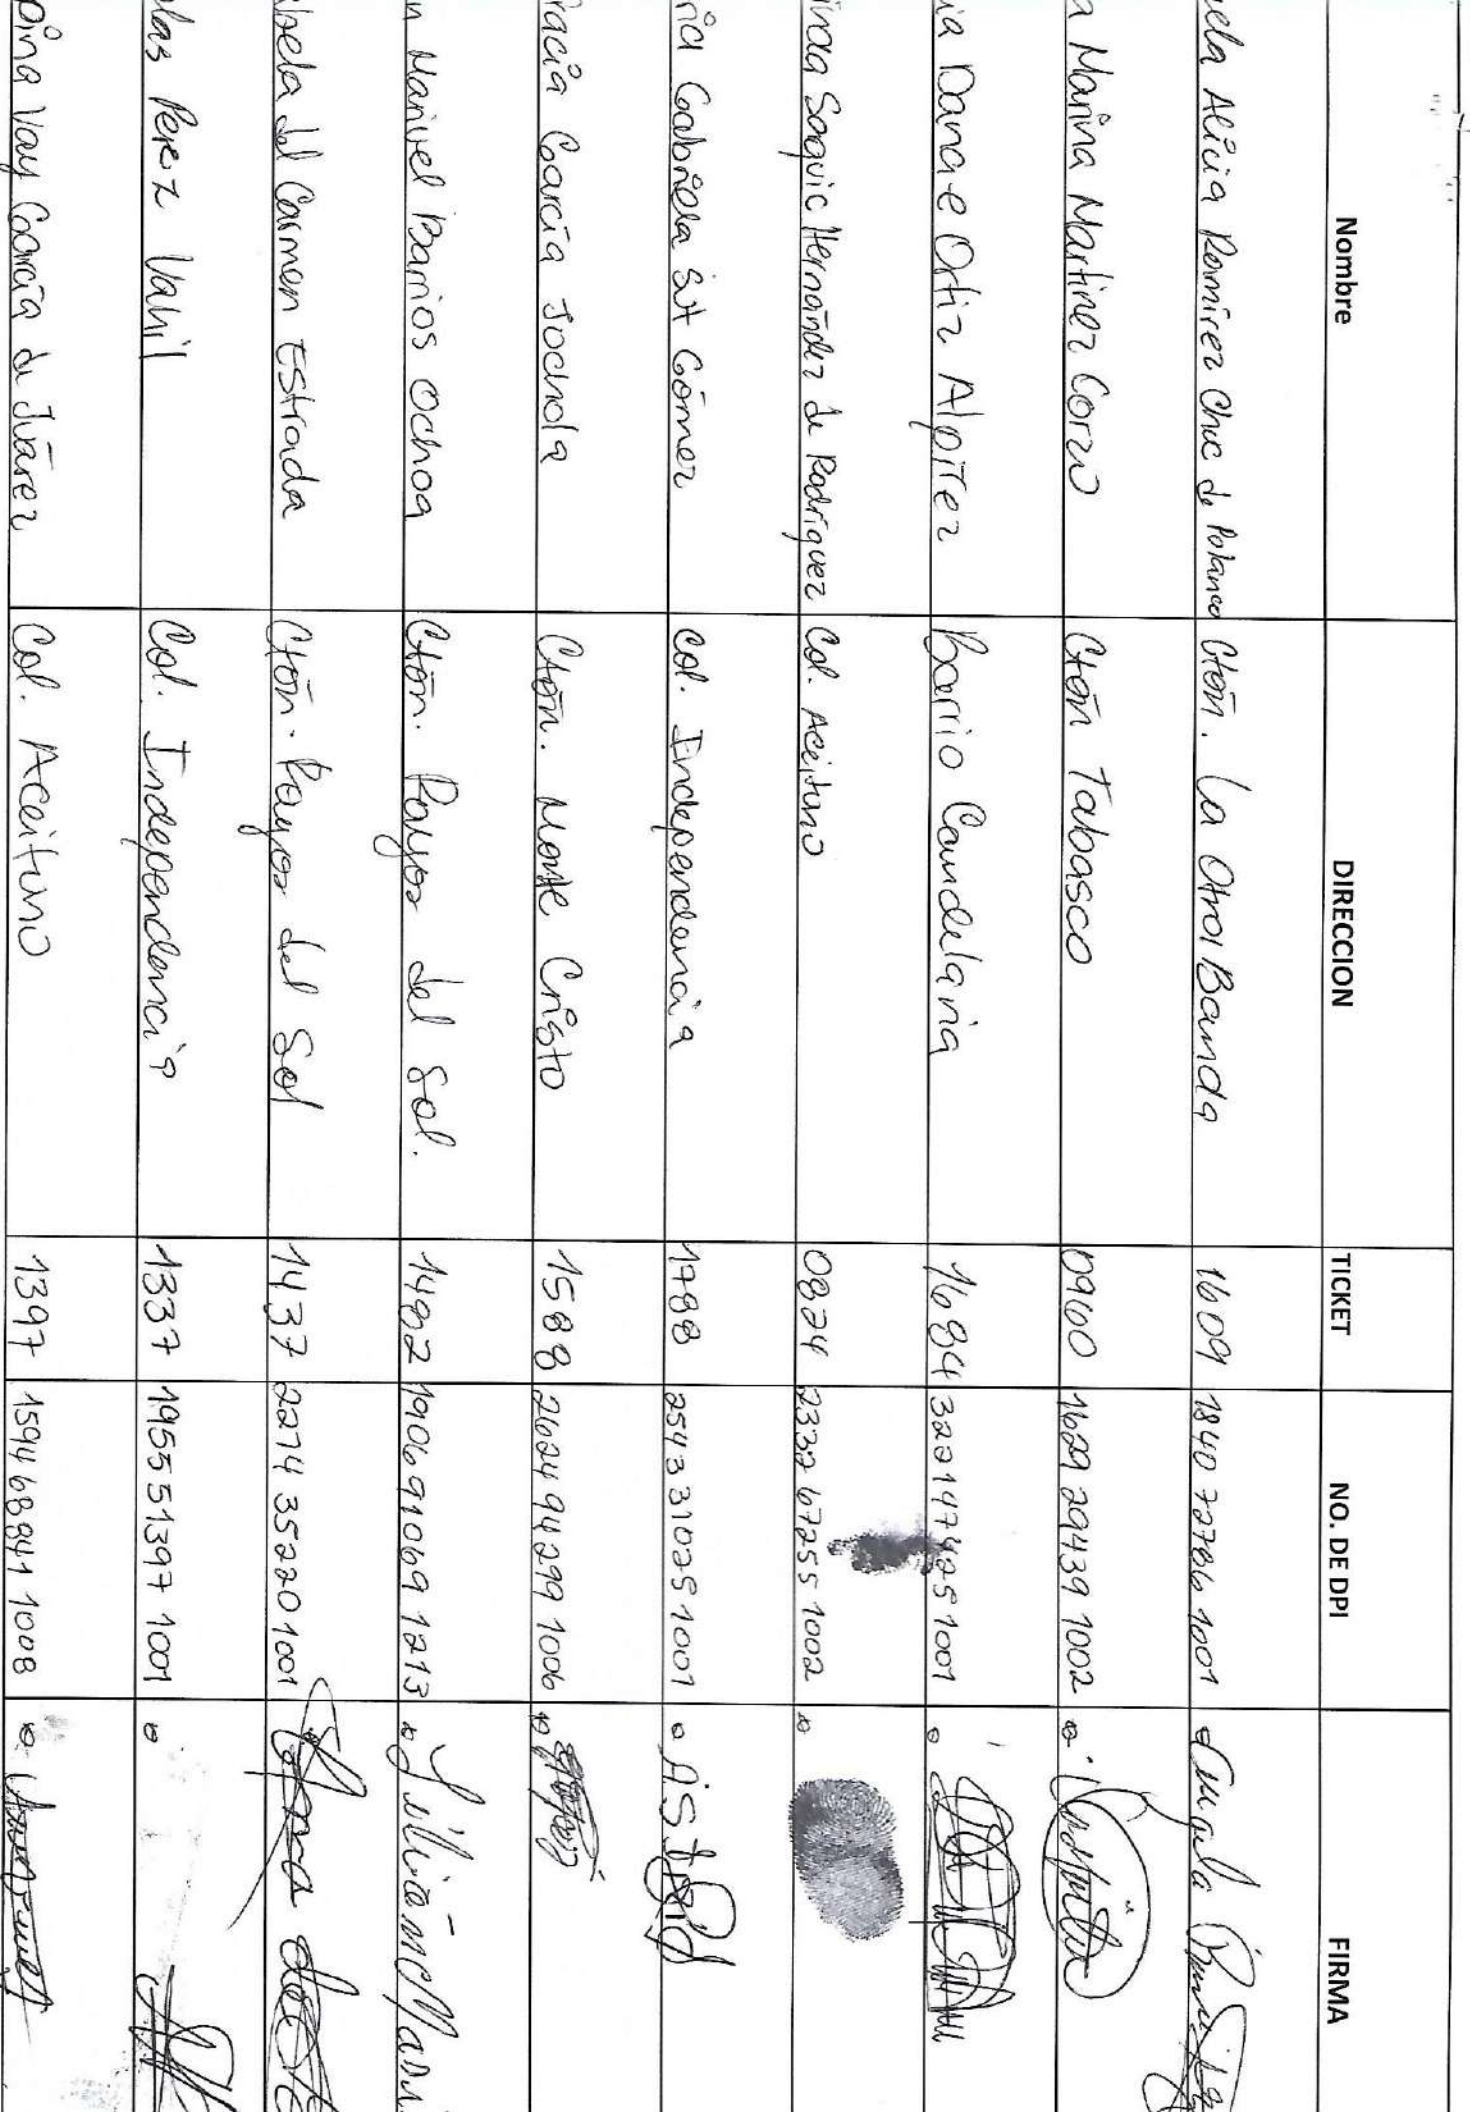 Nombre DIRECCION TICKET NO. DE DPI FIRMA
uela Alicia Ramírez Chuc de Polanco Ctón. La Otra Banda 1609 1840 72786 1001
a Marina Martinez Corzo Ctón Tabasco 0960 1629 29439 1002
ia Danae Ortiz Alpirez Barrio Candelaria 1684 3221 47425 1001
inda Soquic Hernández de Rodríguez Col. Aceituno 0824 2332 67255 1002
ria Gabriela Sit Gómez Col. Independencia 1788 2543 31025 1001 Astrid
racia García Jochola Ctón. Monte Cristo 1588 2624 94299 1006
n Marivel Barrios Ochoa Ctón. Rayos del Sol. 1482 1906 91069 1213
bela del Carmen Estrada Ctón. Rayos del Sol 1437 2274 35220 1001
las Perez Vahil Col. Independencia 1337 1955 51397 1001
pina Vay García de Juárez Col. Aceituno 1397 1594 68841 1008